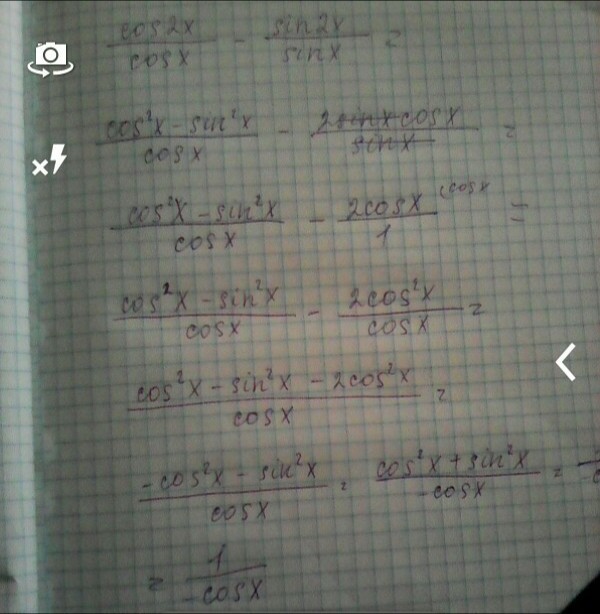 cos2x/cosx - sin2x/sinx =
cos²x - sin²x/cosx - 2sinx cosx/sinx =
cos²x - sin²x/cosx - 2cosx/1 (cosx =
cos²x - sin²x/cosx - 2cos²x/cosx =
cos²x - sin²x - 2cos²x/cosx =
-cos²x - sin²x/cosx = cos²x + sin²x/-cosx =
= 1/-cosx